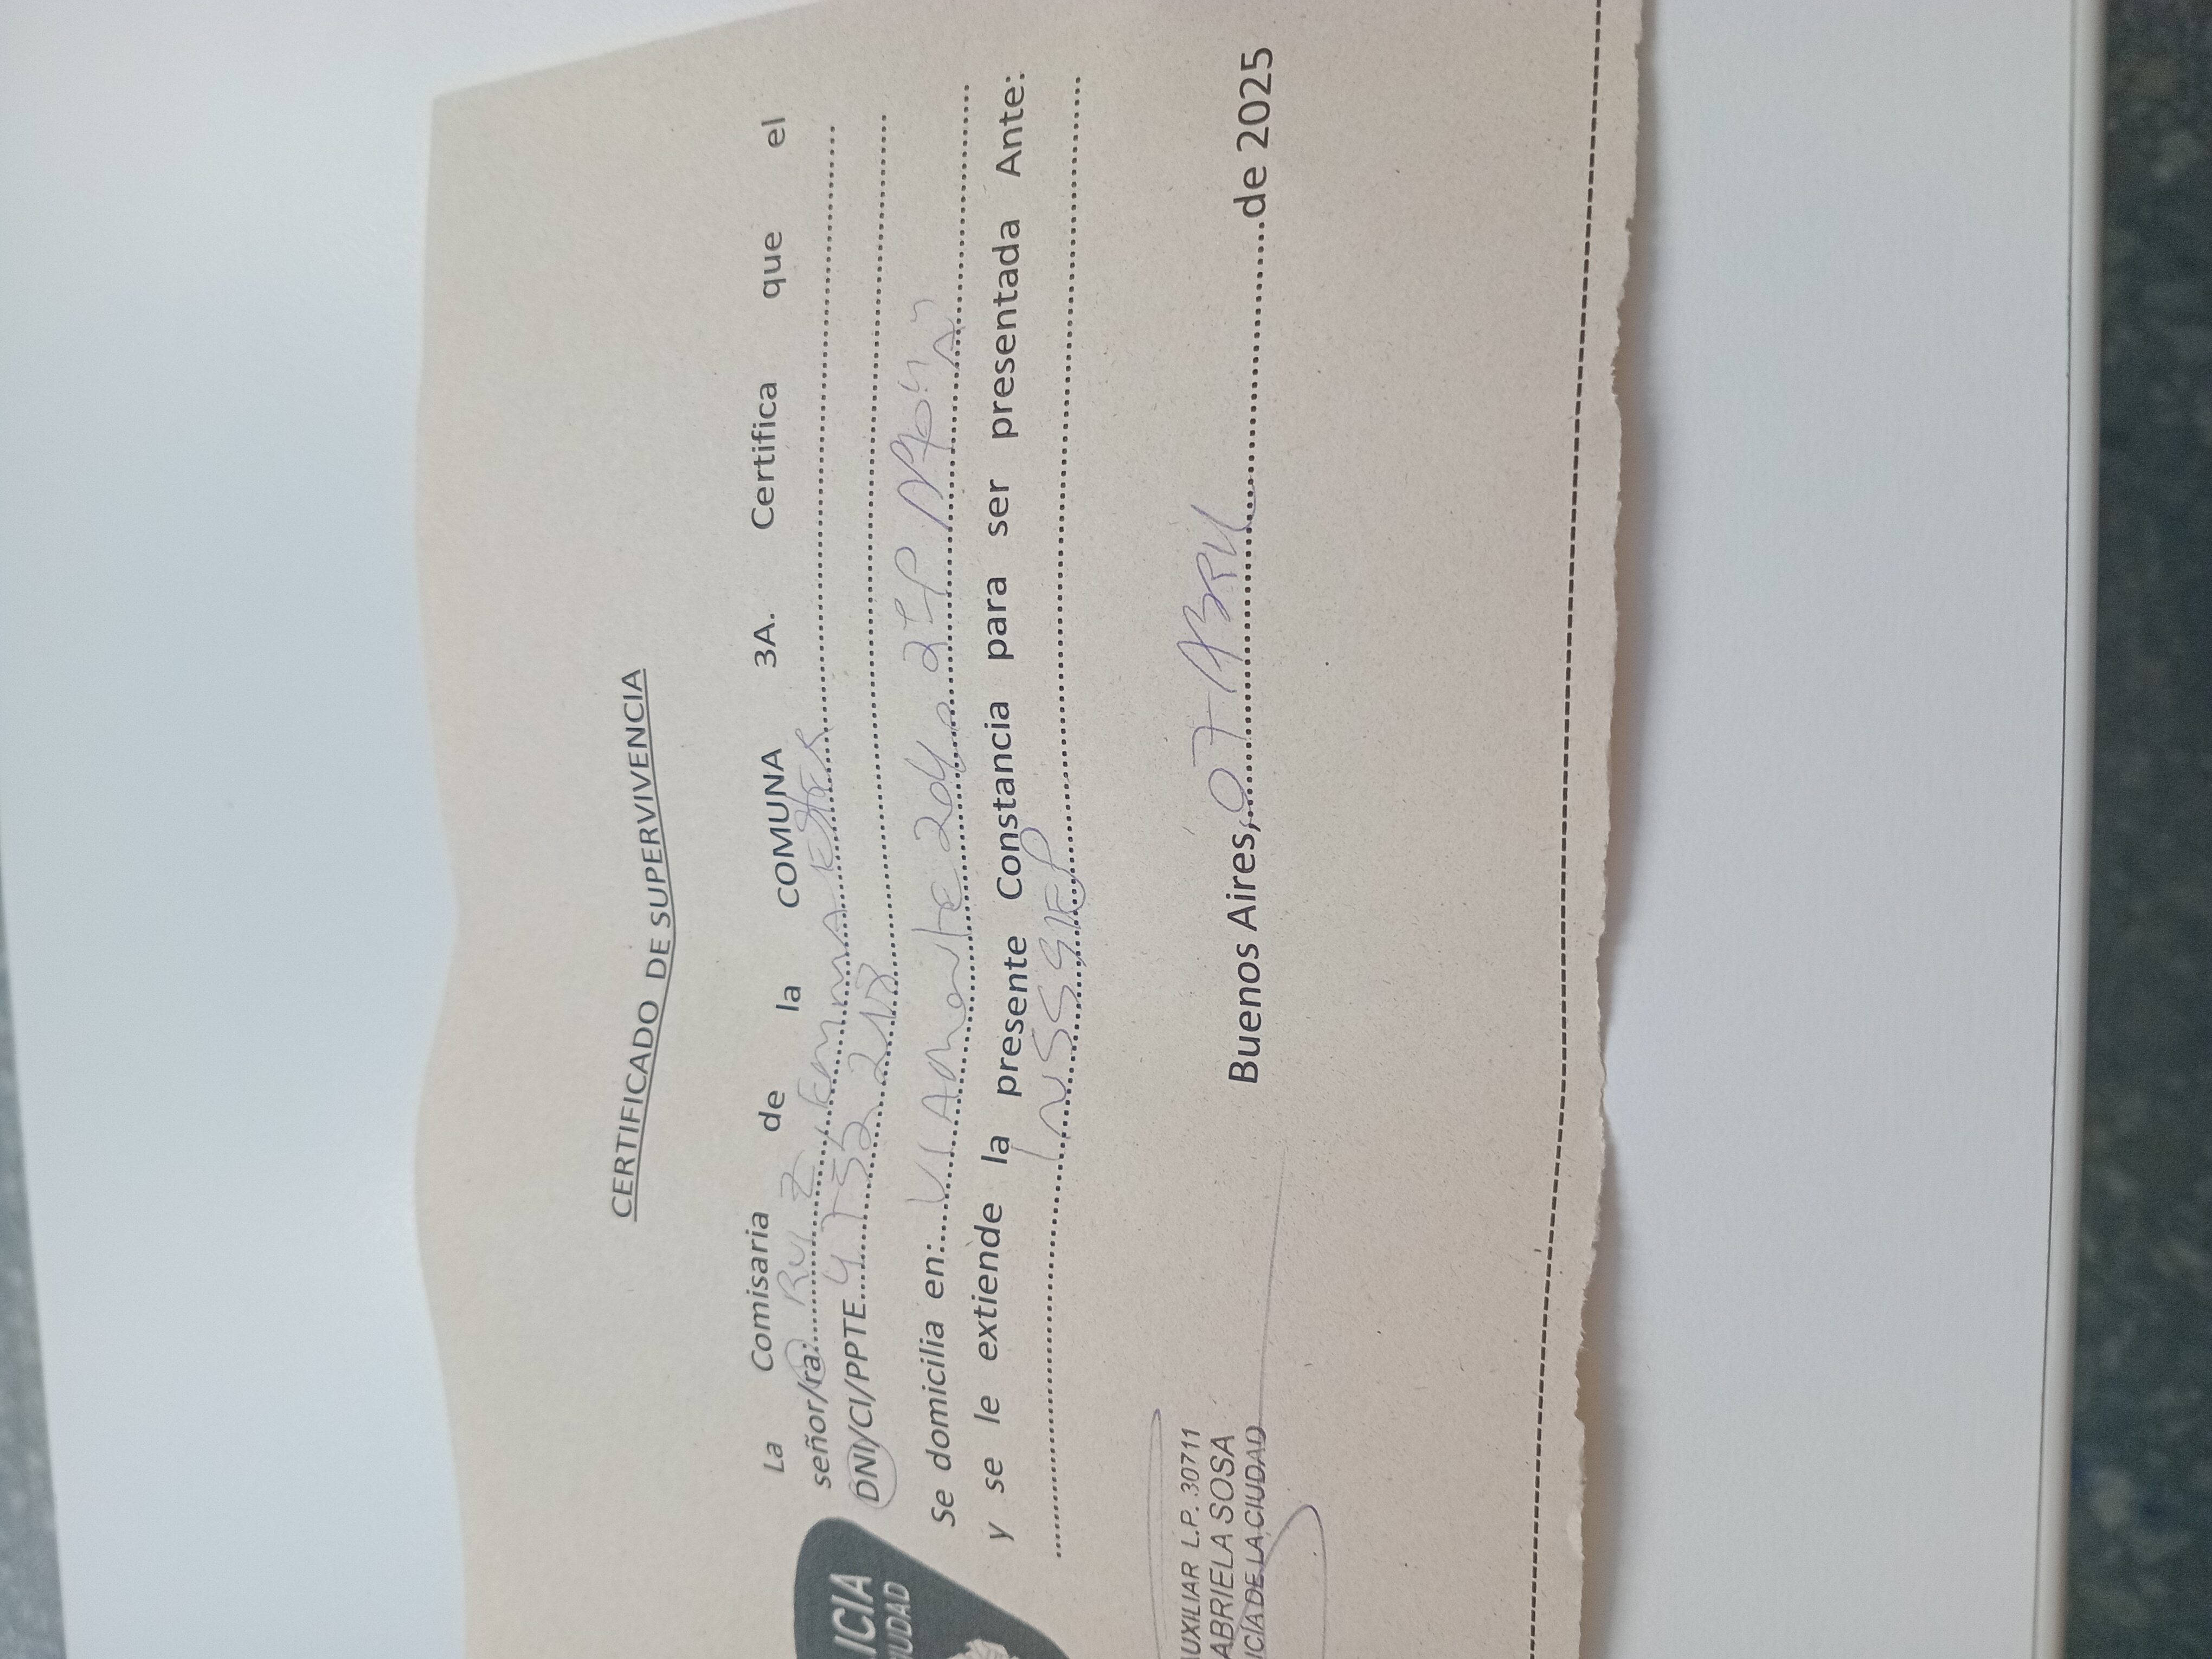 CERTIFICADO DE SUPERVIVENCIA
La Comisaria de la COMUNA 3A. Certifica que el
señor/ra: RUIZ EMMA ESTER
DNI/CI/PPTE 4 752 218
Se domicilia en: VIAMONTE 2º P
y se le extiende la presente Constancia para ser presentada Ante:
INSSSEP
LICIA
CIUDAD
AUXILIAR L.P. 30711
GABRIELA SOSA
POLICÍA DE LA CIUDAD
Buenos Aires, 07 ABRIL de 2025